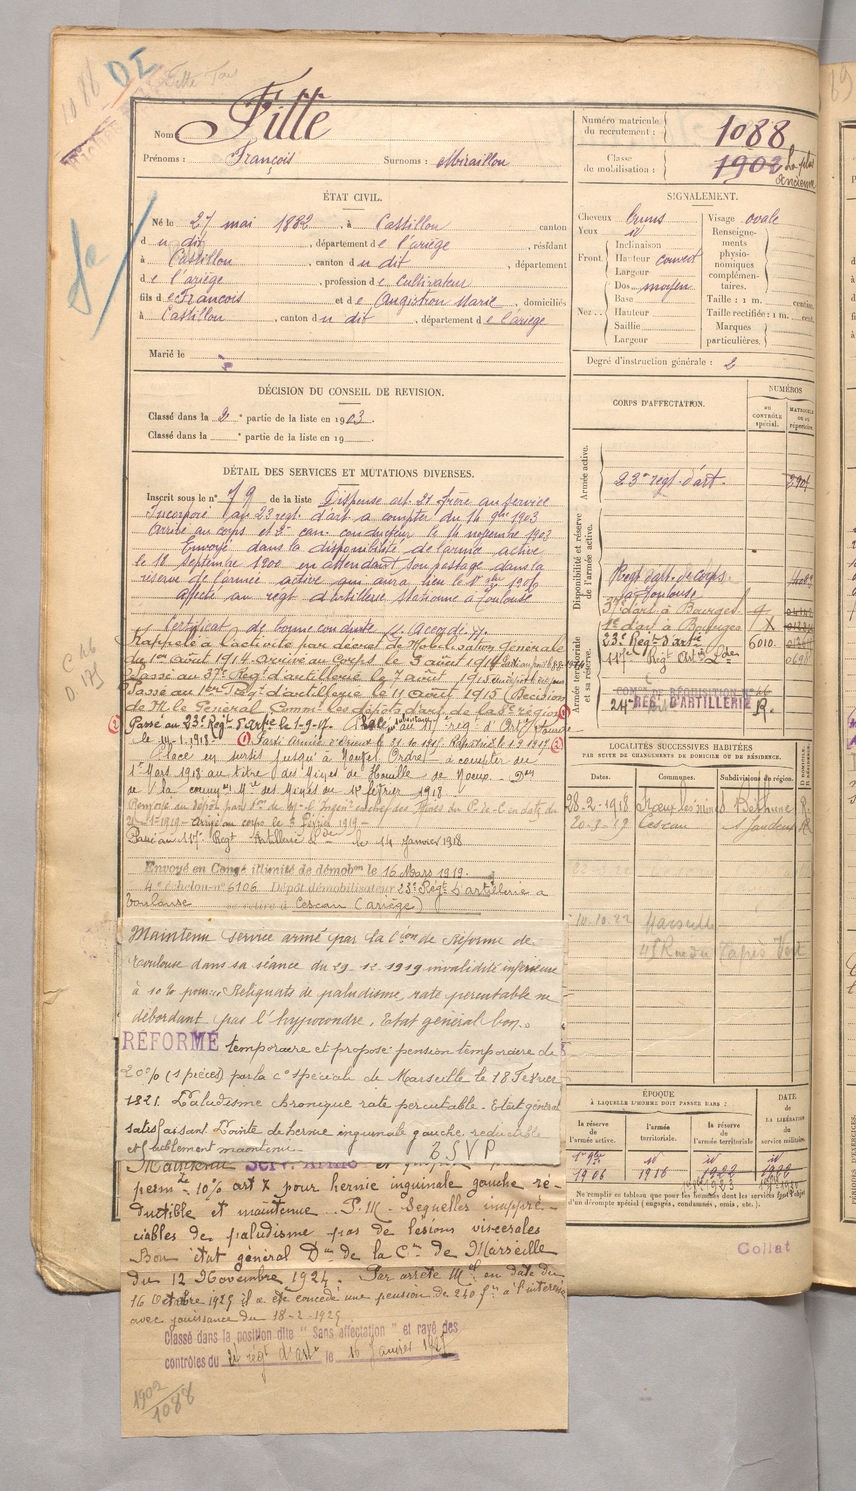 Nom Fitte
Prénoms : François Surnoms : Miraillou
Numéro matricule du recrutement : 1088
Classe de mobilisation : 1902 La plus ancienne
ÉTAT CIVIL.
Né le 27 mai 1882, à Castillon canton
du dit, département de l'ariège, résidant
à Castillon, canton du dit, département
de l'ariège, profession de cultivateur
fils de François et de Angistrou Marie, domiciliés
à Castillon, canton du dit, département de l'ariège
Marié le
SIGNALEMENT.
Cheveux bruns Visage ovale
Yeux id
Front. Inclinaison
Hauteur couvert
Largeur
Nez. Dos moyen
Base
Hauteur
Saillie
Largeur
Renseignements physionomiques complémentaires.
Taille : 1 m. centim.
Taille rectifiée : 1 m. cent.
Marques particulières.
Degré d'instruction générale : 2
DÉCISION DU CONSEIL DE REVISION.
Classé dans la 2e partie de la liste en 1903.
Classé dans la e partie de la liste en 19
DÉTAIL DES SERVICES ET MUTATIONS DIVERSES.
Inscrit sous le n° 79 de la liste Dispensé art. 21 frère au service
Incorporé au 23 régt d'art à compter du 14 9bre 1903
Arrivé au corps et 2e can. conducteur le 14 novembre 1903
Envoyé dans la disponibilité de l'armée active
le 18 septembre en attendant son passage dans la
réserve de l'armée active qui aura lieu le 1er 1906
affecté au régt d'artillerie stationné à Toulouse
Certificat de bonne conduite "Accordé".
Rappelé à l'activité par décret de Mobilisation générale
du 1er août 1914 arrivé au Corps le 3 août 1914
Passé au 37e Régt d'artillerie le 7 août 1915
Passé au 1er Régt d'artillerie le 11 août 1915 (Décision
de M. le Général Commt les dépôts d'art. de la 8e région)
Passé au 23e Régt d'Artie le 1-9-17. Passé au 117e régt d'Art Lourde
le 14-1-1918. Parti Armée d'Orient le 21.10.1915. Rapatrié le 1.9.1917
Placé en sursis jusqu'à Nouvel Ordre à compter du
1er Mars 1918 au titre des Mines de Houille de Noeux. Don
de la des Mines du 1er février 1918
Remis au dépôt par des Mines du P. de C. en date du
1-1919 - arrivé au corps le 3 Février 1919 -
Passé au 117e Regt Artillerie Lde le 14 Janvier 1918
Envoyé en Congé illimité de démobon le 16 Mars 1919.
4e échelon n° 6106 Dépôt démobilisateur 23e Régt d'artillerie à
Toulouse se retire à Cescau (Ariège)
Maintenu service armé par la Cion de Réforme de
Toulouse dans sa séance du 29-12-1919 invalidité inférieure
à 10% pour : Reliquats de paludisme, rate percutable ne
débordant pas l'hypocondre, Etat général bon.
RÉFORMÉ temporaire et proposé pension temporaire de
20% (1 pièces) par la Con spéciale de Marseille le 18 Février
1921. Paludisme chronique rate percutable. Etat général
satisfaisant. Pointe de hernie inguinale gauche, reductible
et facilement maintenue. TSVP
Maintenu SERV. ARMÉ et
permte 10% art X pour hernie inguinale gauche ré-
ductible et maintenue - P.M. Séquelles inappré-
ciables de paludisme pas de lésions viscérales
Bon état général Don de la Con de Marseille
du 12 Novembre 1924. Par arrêté Mel en date du
16 Octobre 1925 il a été concédé une pension de 240 f
avec jouissance du 18-2-1925
Classé dans la position dite "Sans affectation" et rayé des
contrôles du régt d'artie le 16 Janvier
1902
1088
CORPS D'AFFECTATION.
NUMÉROS
AU CONTRÔLE spécial.
MATRICULE OU AU répertoire.
Armée active.
23e régt d'art.
Disponibilité et réserve de l'armée active.
Régt d'art. de corps à Toulouse
37e d'art à Bourges
1er d'art à Bourges
Armée territoriale et sa réserve.
23e Régt d'Artie 6010
117e Régt Artie Lde
24e REG. D'ARTILLERIE
LOCALITÉS SUCCESSIVES HABITÉES
PAR SUITE DE CHANGEMENTS DE DOMICILE OU DE RÉSIDENCE.
Dates. Communes. Subdivisions de région. D domicile R. RÉSIDENCE.
28-2-1918 Noeux les mines Bethune R.
20-3-19 Cescau St Gaudens
10-10-22 Marseille
45 Rue du Tapis Vert
ÉPOQUE
À LAQUELLE L'HOMME DOIT PASSER DANS :
DATE de LA LIBÉRATION du service militaire.
la réserve de l'armée active. l'armée territoriale. la réserve de l'armée territoriale
1906 1916 1922
Ne remplir ce tableau que pour les hommes dont les services font l'objet
d'un décompte spécial (engagés, condamnés, omis, etc.).
Collat